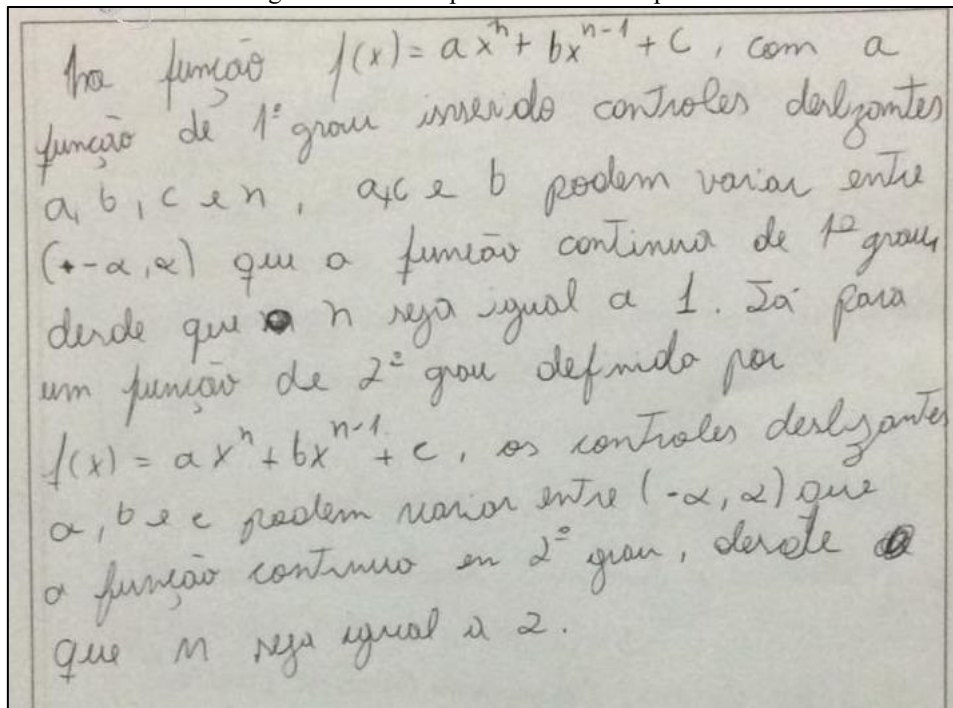 na função f(x) = ax^n + bx^{n-1} + c, com a
função de 1º grau inserido controles deslizantes
a, b, c e n, a,c e b podem variar entre
(+-α, α) que a função continua de 1º grau,
desde que n seja igual a 1. Já para
um função de 2º grau definida por
f(x) = ax^n + bx^{n-1} + c, os controles deslizantes
a, b e c podem variar entre (-α, α) que
a função continuo en 2º grau, desde
que n seja igual à 2.